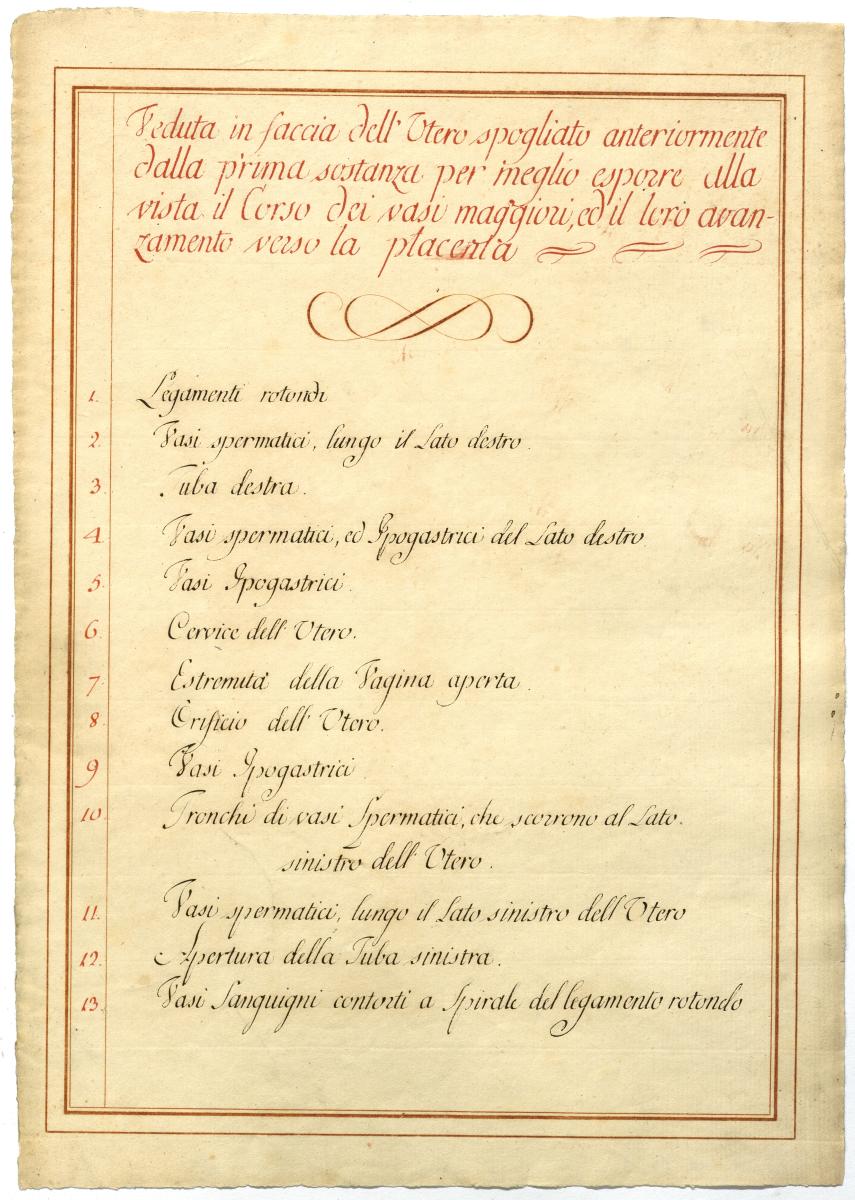 Veduta in faccia dell' Utero spogliato anteriormente
dalla prima sostanza per meglio esporre alla
vista il Corso dei vasi maggiori, ed il loro avan-
zamento verso la placenta
1. Legamenti rotondi
2. Vasi spermatici, lungo il Lato destro.
3. Tuba destra.
4. Vasi spermatici, ed Ipogastrici del Lato destro
5. Vasi Ipogastrici.
6. Cervice dell' Utero.
7. Estremità della Vagina aperta.
8. Orificio dell' Utero.
9. Vasi Ipogastrici
10. Tronchi di vasi Spermatici, che scorrono al Lato.
sinistro dell' Utero.
11. Vasi spermatici, lungo il Lato sinistro dell' Utero
12. Apertura della Tuba sinistra.
13. Vasi Sanguigni contorti a Spirale del legamento rotondo